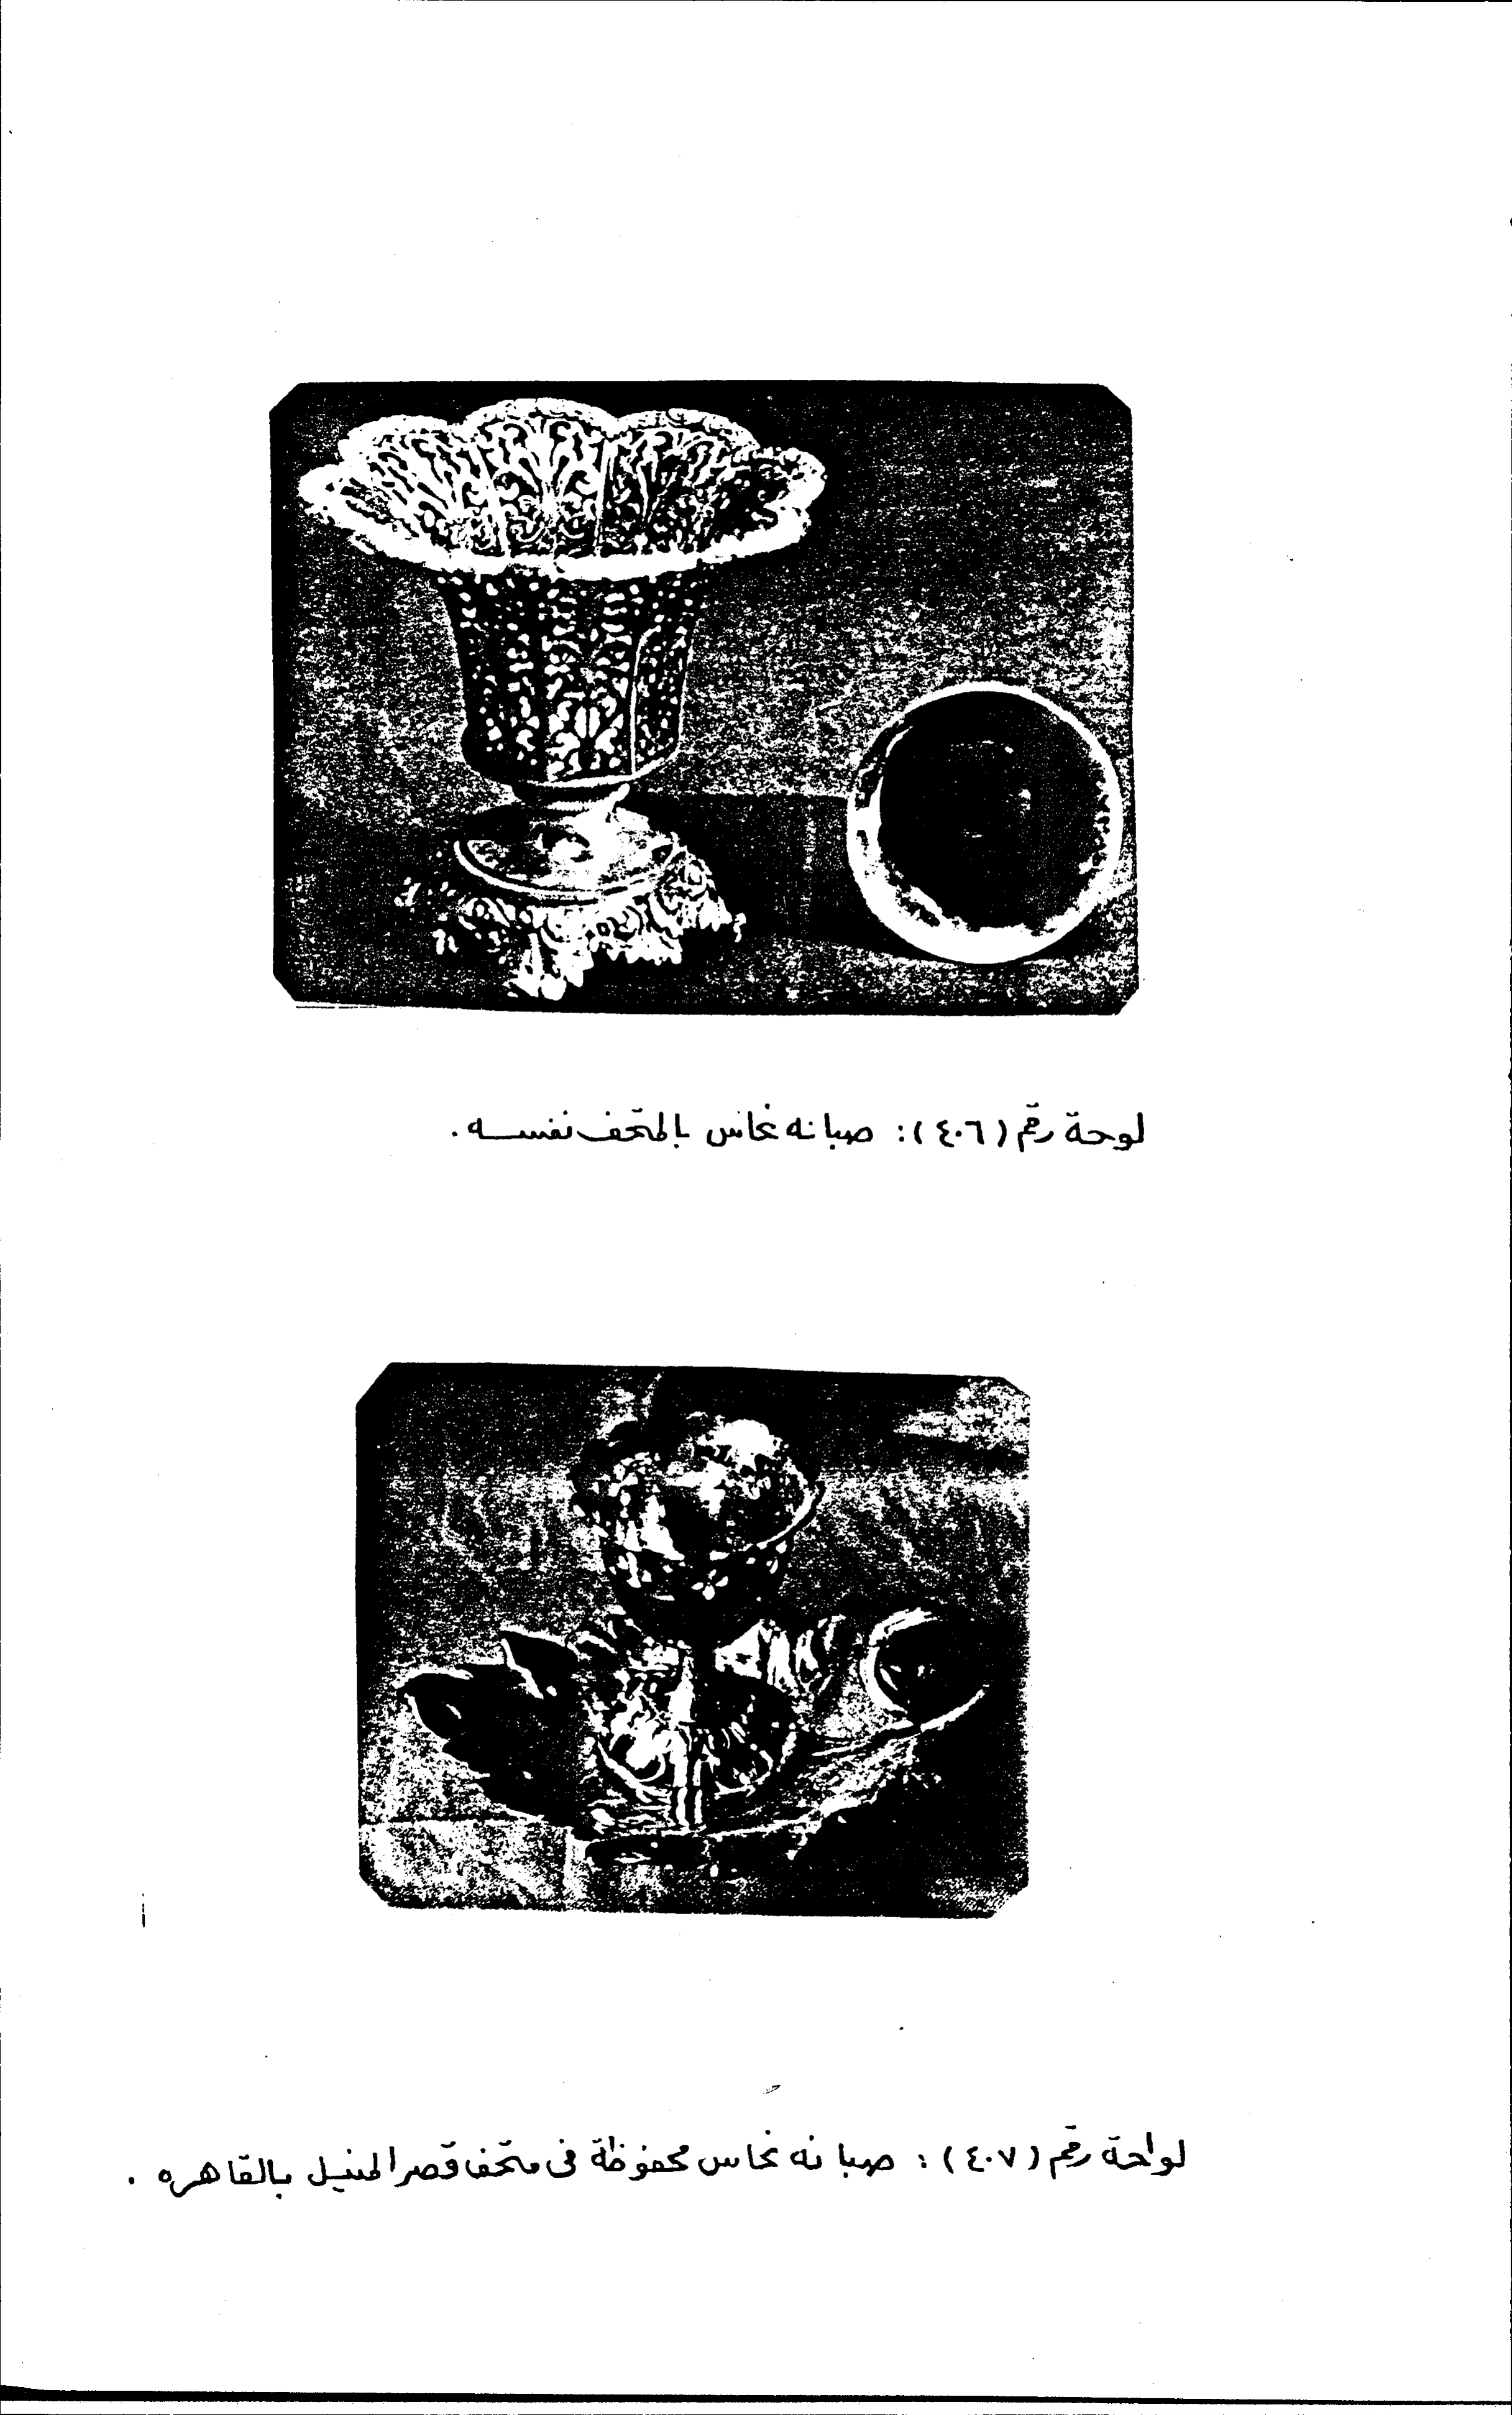 لوحة رقم (٤٠٦): صبانه نحاس بالمتحف نفسه.
لواحة رقم (٤٠٧): صبانه نحاس محفوظة فى متحف قصر المنيل بالقاهره.